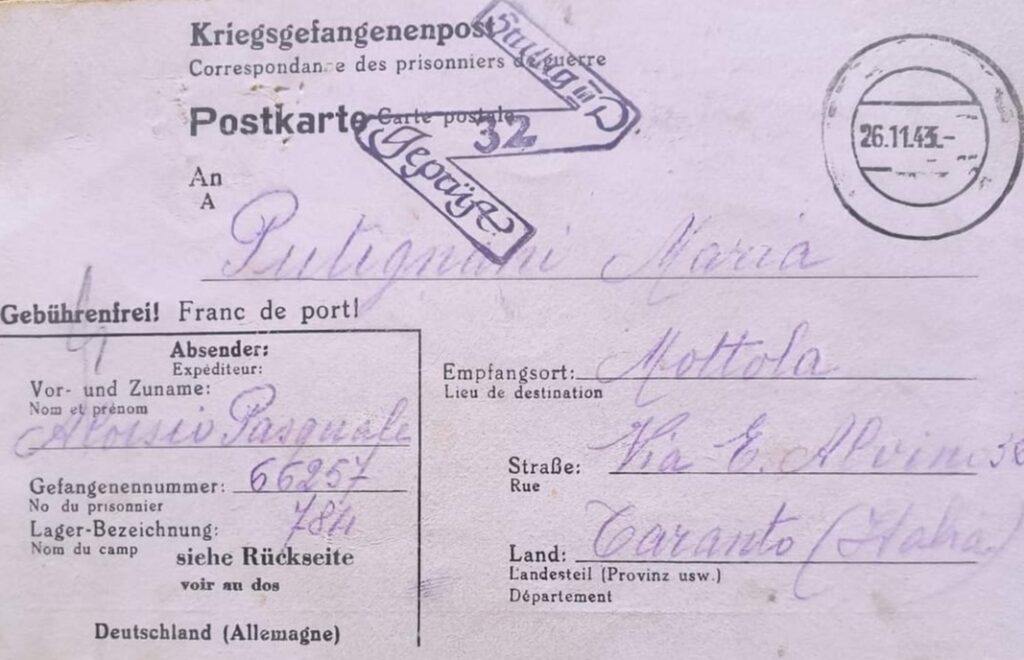 Kriegsgefangenenpost
Correspondance des prisonniers de guerre
Postkarte Carte postale
Geprüft
32
26.11.43.-
An
A
Putignani Maria
Gebührenfrei! Franc de port!
Absender:
Expéditeur:
Vor- und Zuname:
Nom et prénom
Aloisio Pasquale
Gefangenennummer: 66257
No du prisonnier
Lager-Bezeichnung:
Nom du camp
siehe Rückseite
voir au dos
Deutschland (Allemagne)
Empfangsort: Mottola
Lieu de destination
Straße: Via E.
Rue
Land: Taranto (Italia)
Landesteil (Provinz usw.)
Département